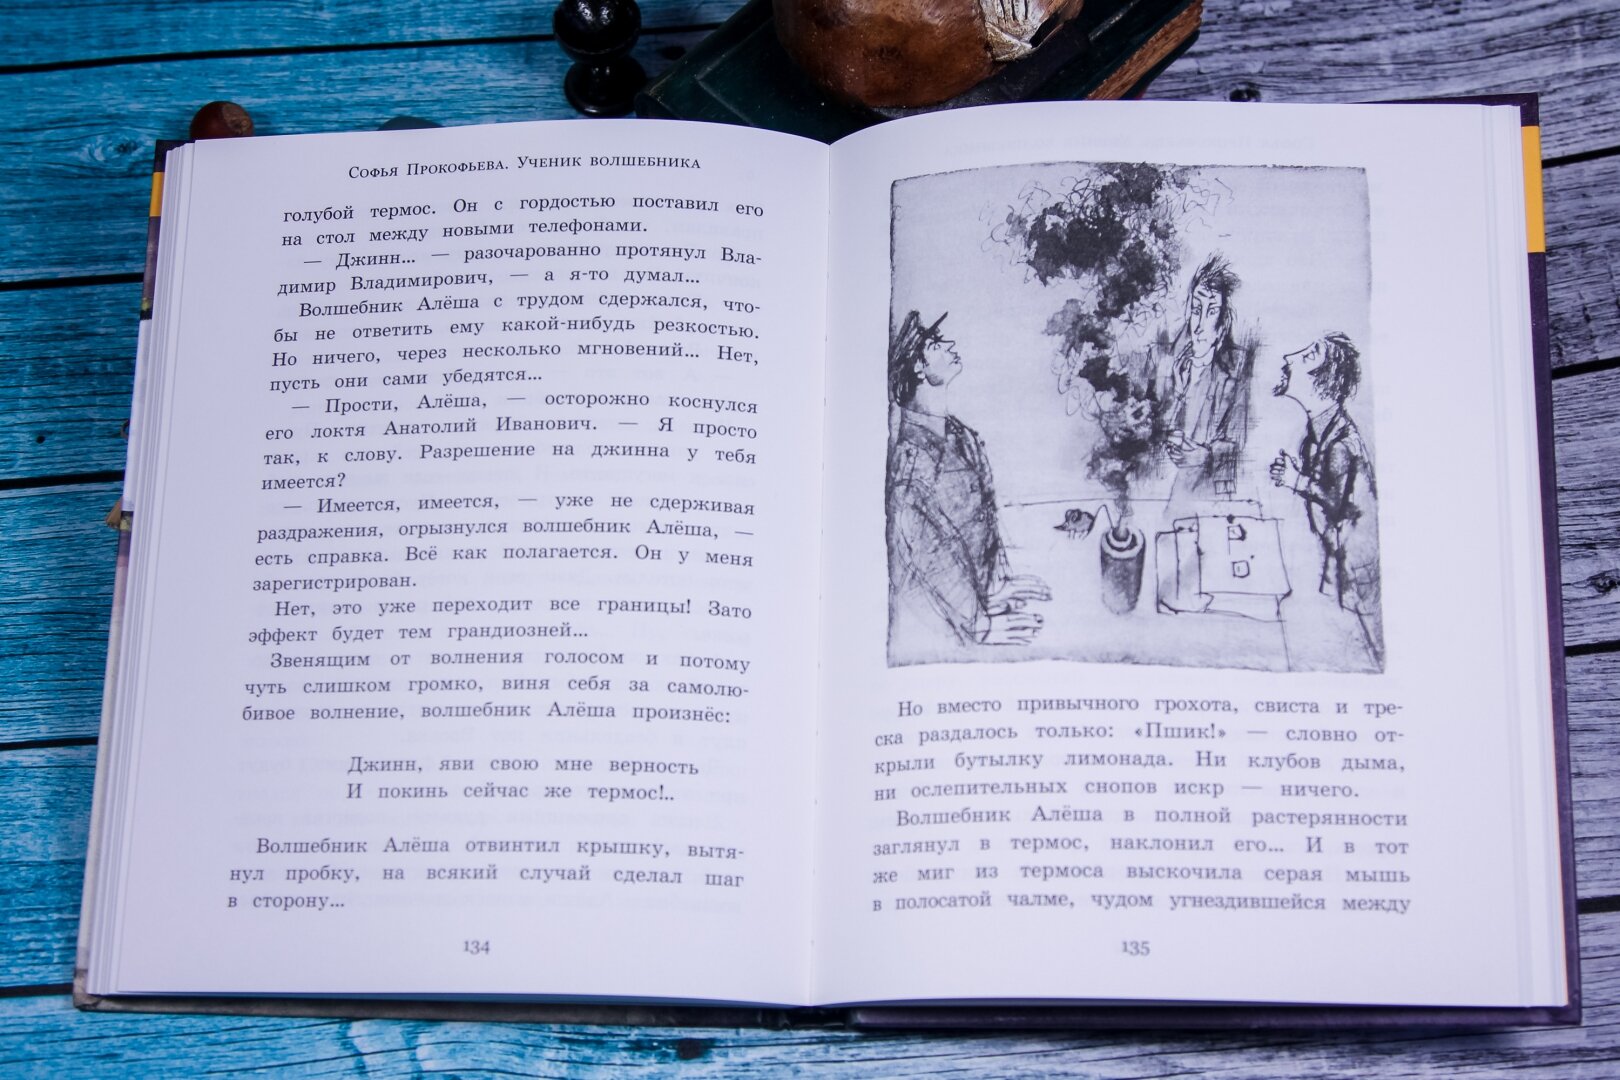 Софья Прокофьева. Ученик волшебника
голубой термос. Он с гордостью поставил его
на стол между новыми телефонами.
— Джинн... — разочарованно протянул Вла-
димир Владимирович, — а я-то думал...
Волшебник Алёша с трудом сдержался, что-
бы не ответить ему какой-нибудь резкостью.
Но ничего, через несколько мгновений... Нет,
пусть они сами убедятся...
— Прости, Алёша, — осторожно коснулся
его локтя Анатолий Иванович. — Я просто
так, к слову. Разрешение на джинна у тебя
имеется?
— Имеется, имеется, — уже не сдерживая
раздражения, огрызнулся волшебник Алёша, —
есть справка. Всё как полагается. Он у меня
зарегистрирован.
Нет, это уже переходит все границы! Зато
эффект будет тем грандиозней...
Звенящим от волнения голосом и потому
чуть слишком громко, виня себя за самолю-
бивое волнение, волшебник Алёша произнёс:
Джинн, яви свою мне верность
И покинь сейчас же термос!..
Волшебник Алёша отвинтил крышку, вытя-
нул пробку, на всякий случай сделал шаг
в сторону...
134
Но вместо привычного грохота, свиста и тре-
ска раздалось только: «Пшик!» — словно от-
крыли бутылку лимонада. Ни клубов дыма,
ни ослепительных снопов искр — ничего.
Волшебник Алёша в полной растерянности
заглянул в термос, наклонил его... И в тот
же миг из термоса выскочила серая мышь
в полосатой чалме, чудом угнездившейся между
135